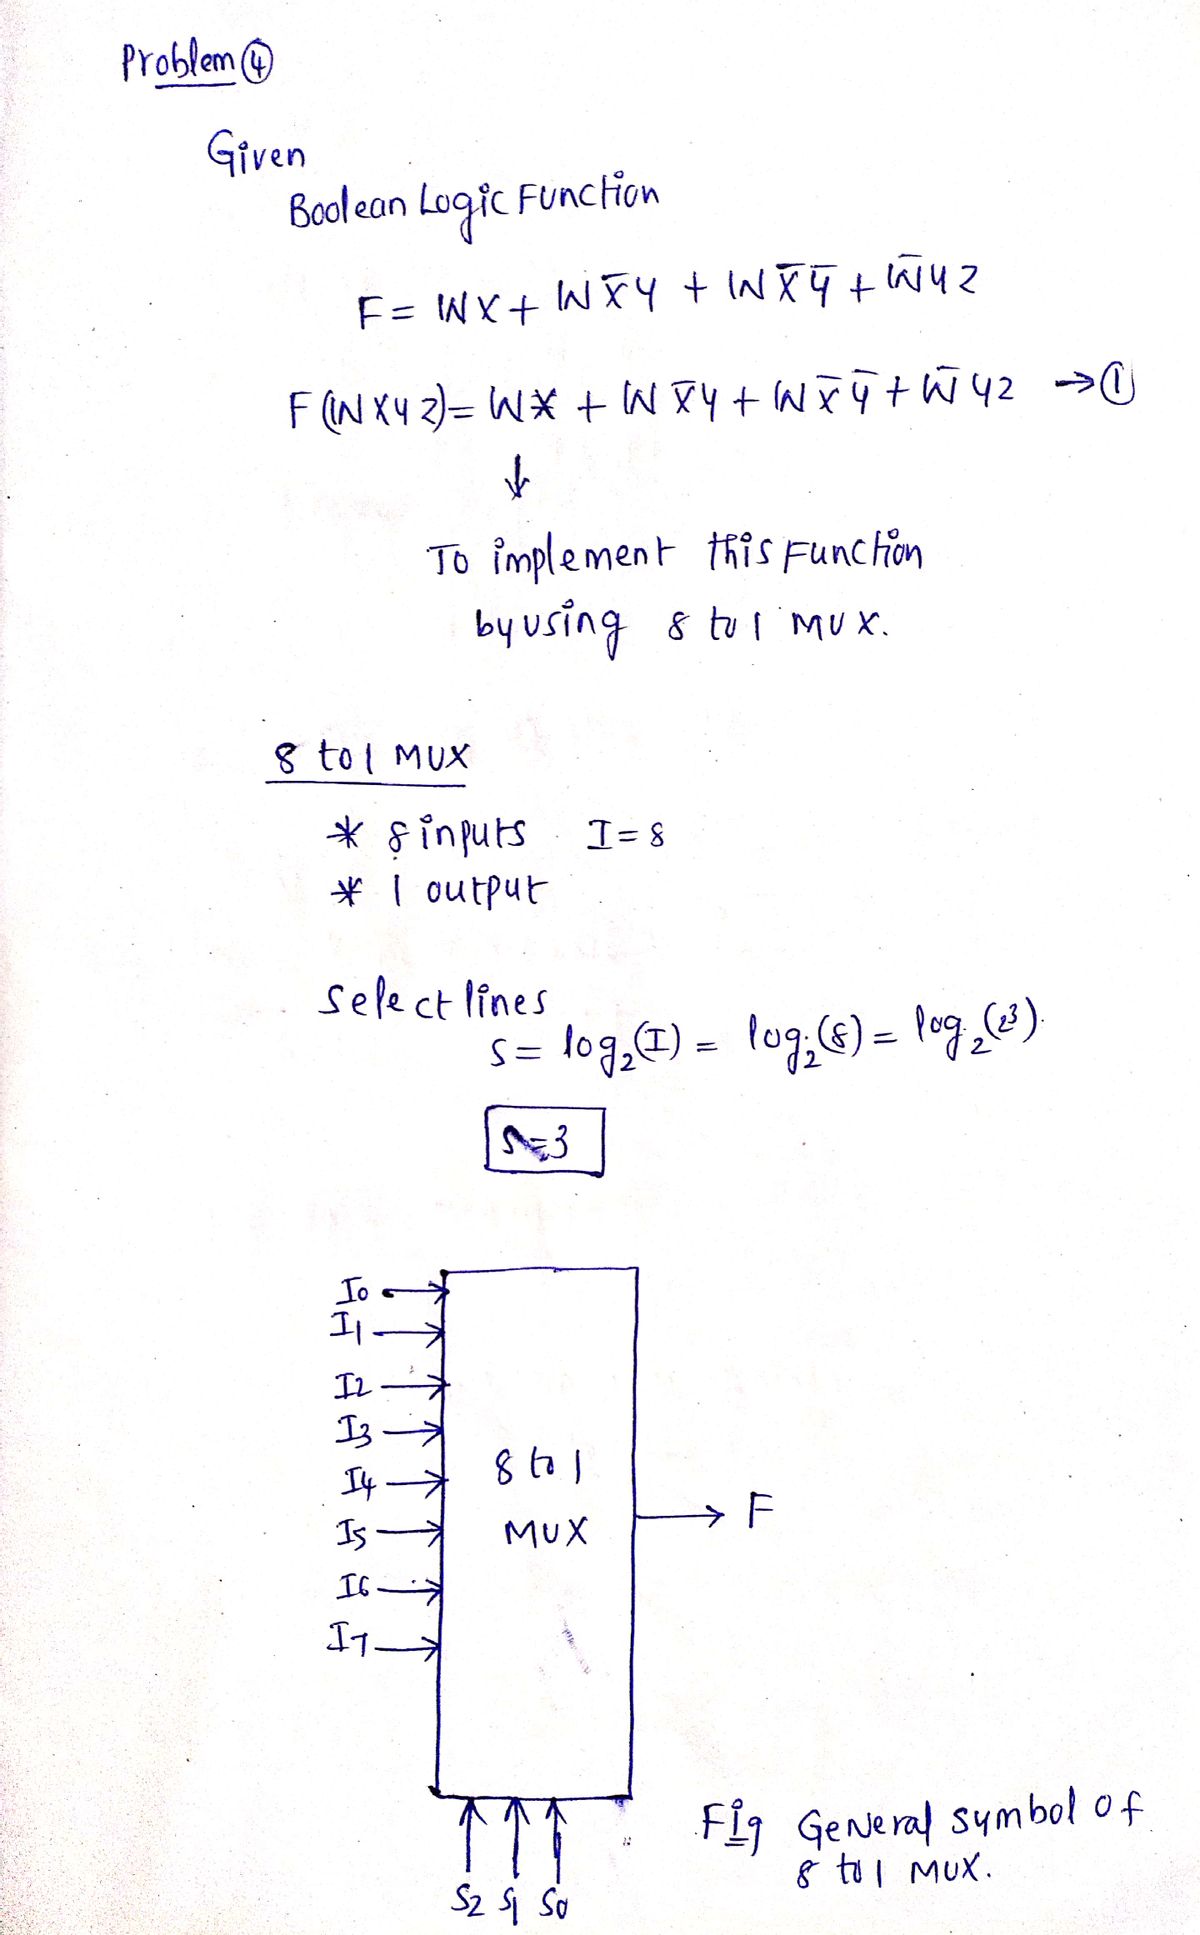 Problem ④
Given
Boolean Logic Function
F = WX + WX̅Y + WX̅Y̅ + W̅YZ
F(WXYZ) = WX + WX̅Y + WX̅Y̅ + W̅YZ → ①
↓
To implement this Function
by using 8 to 1 MUX.
8 to 1 MUX
* 8 inputs I = 8
* 1 output
Select lines
S = log₂(I) = log₂(8) = log₂(2³).
S=3
I0
I1
I2
I3
I4
I5
I6
I7
8 to 1
MUX
F
S2 S1 S0
Fig General symbol of
8 to 1 MUX.